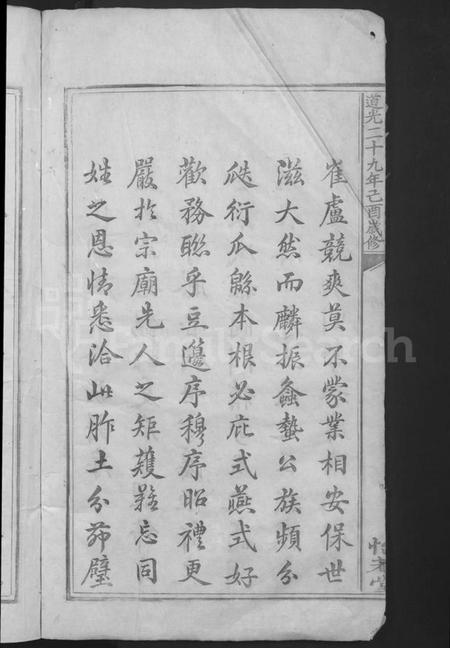 道光二十九年己酉歲修
崔盧競爽莫不蒙業相安保世
滋大然而麟振螽蟄公族頻分
瓞衍瓜緜本根必庇式燕式好
歡務聯乎豆籩序穆序昭禮更
嚴於宗廟先人之矩矱難忘同
姓之恩情悉洽此胙土分茆璧
FamilySearch